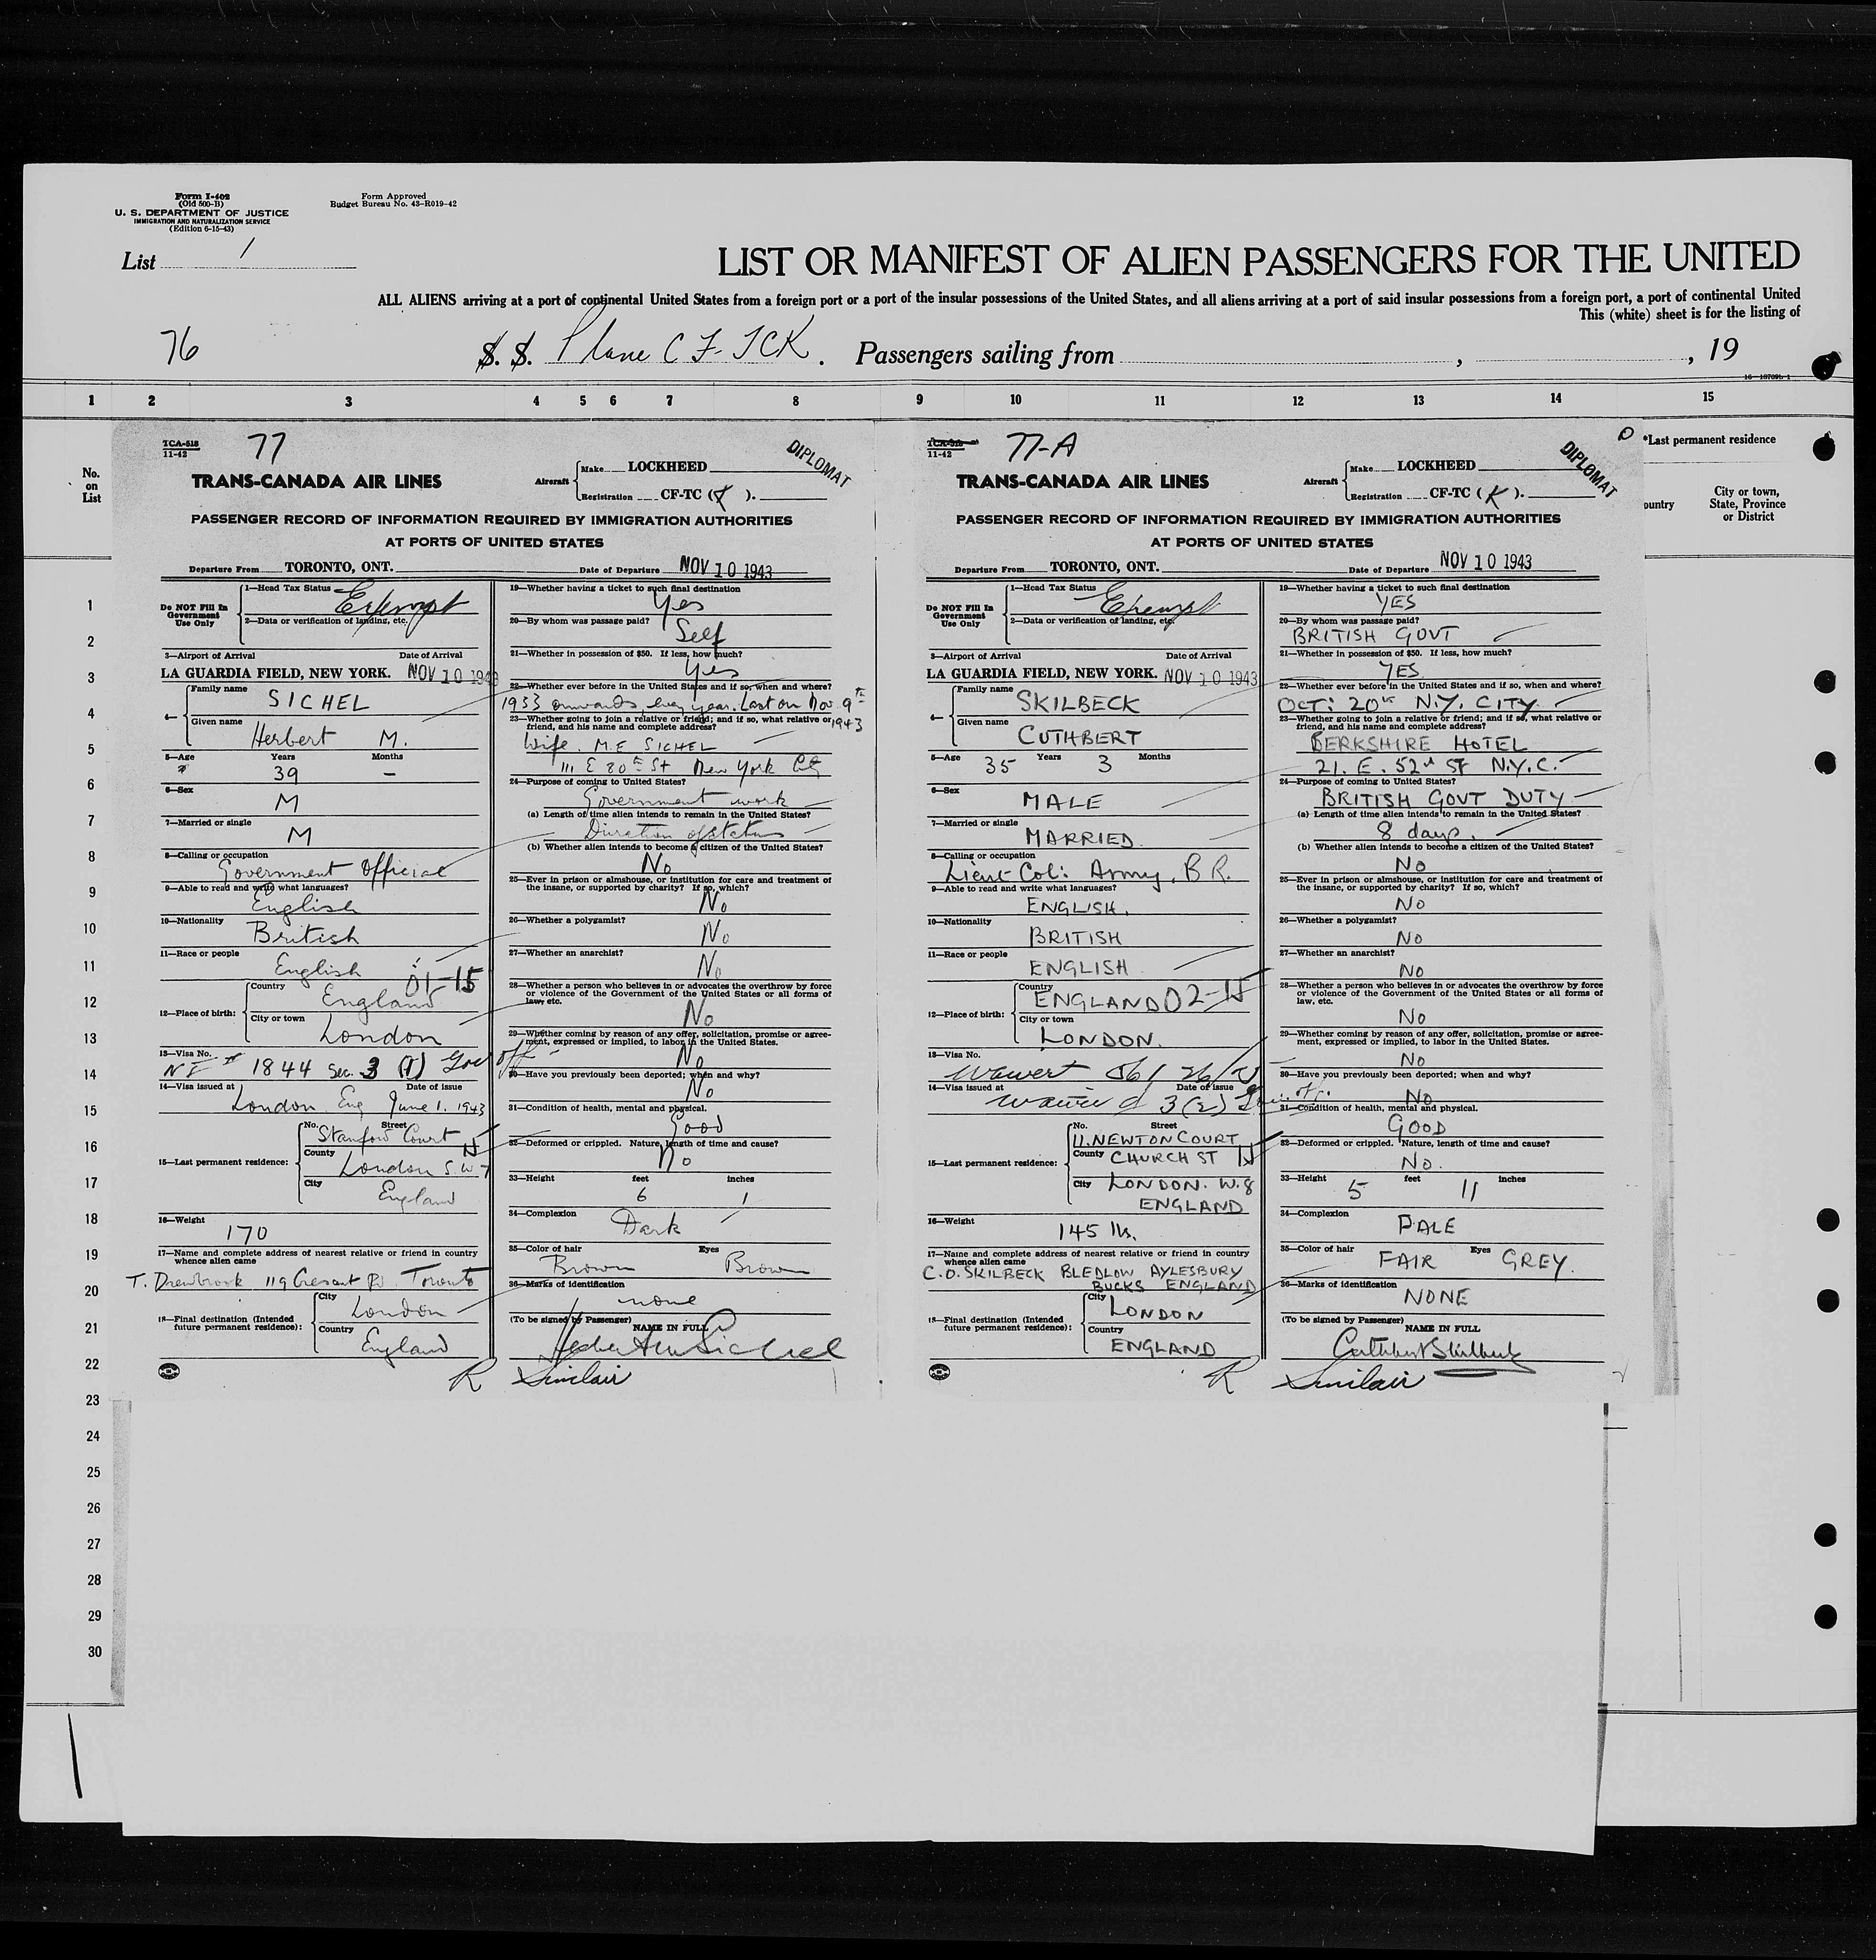 Form I-402
(Old 500-B)
U. S. DEPARTMENT OF JUSTICE
IMMIGRATION AND NATURALIZATION SERVICE
(Edition 6-15-43)
Form Approved
Budget Bureau No. 43-R019-42
List 1
LIST OR MANIFEST OF ALIEN PASSENGERS FOR THE UNITED
ALL ALIENS arriving at a port of continental United States from a foreign port or a port of the insular possessions of the United States, and all aliens arriving at a port of said insular possessions from a foreign port, a port of continental United
This (white) sheet is for the listing of
76 S. S. Plane CF-TCK. Passengers sailing from , , 19
1 2 3 4 5 6 7 8 9 10 11 12 13 14 15
No.
on
List
*Last permanent residence
ountry
City or town,
State, Province
or District
1
2
3
4
5
6
7
8
9
10
11
12
13
14
15
16
17
18
19
20
21
22
23
24
25
26
27
28
29
30
TCA-518
11-42
77
DIPLOMAT
TRANS-CANADA AIR LINES
Aircraft Make LOCKHEED
Registration CF-TC (K).
PASSENGER RECORD OF INFORMATION REQUIRED BY IMMIGRATION AUTHORITIES
AT PORTS OF UNITED STATES
Departure From TORONTO, ONT. Date of Departure NOV 10 1943
Do NOT Fill In
Government
Use Only
1—Head Tax Status Exempt
2—Data or verification of landing, etc.
3—Airport of Arrival Date of Arrival
LA GUARDIA FIELD, NEW YORK. NOV 10 1943
4— Family name
SICHEL
Given name
Herbert M.
5—Age Years Months
39 —
6—Sex
M
7—Married or single
M
8—Calling or occupation
Government Official
9—Able to read and write what languages?
English
10—Nationality
British
11—Race or people
English 01-15
12—Place of birth: Country
England
City or town
London
13—Visa No.
1844 Sec. 3 (1) Gov off
14—Visa issued at Date of issue
London Eng June 1. 1943
15—Last permanent residence:
No. Street
Stanford Court
County
London S.W.7
City
England
16—Weight
170
17—Name and complete address of nearest relative or friend in country
whence alien came
T. 119 Crescent Rd. Toronto
18—Final destination (Intended
future permanent residence):
City
London
Country
England
19—Whether having a ticket to such final destination
Yes
20—By whom was passage paid?
Self
21—Whether in possession of $50. If less, how much?
Yes
22—Whether ever before in the United States and if so, when and where?
1933 onwards, every year. Last on Nov. 9th
1943
23—Whether going to join a relative or friend; and if so, what relative or
friend, and his name and complete address?
Wife. M.E SICHEL
111 E 80th St New York City
24—Purpose of coming to United States?
Government work
(a) Length of time alien intends to remain in the United States?
Duration of status
(b) Whether alien intends to become a citizen of the United States?
No
25—Ever in prison or almshouse, or institution for care and treatment of
the insane, or supported by charity? If so, which?
No
26—Whether a polygamist?
No
27—Whether an anarchist?
No
28—Whether a person who believes in or advocates the overthrow by force
or violence of the Government of the United States or all forms of
law, etc.
No
29—Whether coming by reason of any offer, solicitation, promise or agree-
ment, expressed or implied, to labor in the United States.
No
30—Have you previously been deported; when and why?
No
31—Condition of health, mental and physical.
Good
32—Deformed or crippled. Nature, length of time and cause?
No
33—Height feet inches
6 1
34—Complexion
Dark
35—Color of hair Eyes
Brown Brown
36—Marks of identification
none
(To be signed by Passenger) NAME IN FULL
Herbert M Sichel
R Sinclair
TCA-518
11-42
77-A
DIPLOMAT
TRANS-CANADA AIR LINES
Aircraft Make LOCKHEED
Registration CF-TC (K).
PASSENGER RECORD OF INFORMATION REQUIRED BY IMMIGRATION AUTHORITIES
AT PORTS OF UNITED STATES
Departure From TORONTO, ONT. Date of Departure NOV 10 1943
Do NOT Fill In
Government
Use Only
1—Head Tax Status Exempt
2—Data or verification of landing, etc.
3—Airport of Arrival Date of Arrival
LA GUARDIA FIELD, NEW YORK. NOV 10 1943
4— Family name
SKILBECK
Given name
CUTHBERT
5—Age Years Months
35 3
6—Sex
MALE
7—Married or single
MARRIED
8—Calling or occupation
Lieut Col: Army, BR.
9—Able to read and write what languages?
ENGLISH.
10—Nationality
BRITISH
11—Race or people
ENGLISH
12—Place of birth: Country
ENGLAND 02-15
City or town
LONDON.
13—Visa No.
14—Visa issued at Date of issue
3 (2) Gov. off.
15—Last permanent residence:
No. Street
11. NEWTON COURT
County CHURCH ST
City LONDON. W.8
ENGLAND
16—Weight
145 lbs.
17—Name and complete address of nearest relative or friend in country
whence alien came
C.O. SKILBECK BLEDLOW AYLESBURY
BUCKS ENGLAND
18—Final destination (Intended
future permanent residence):
City
LONDON
Country
ENGLAND
19—Whether having a ticket to such final destination
YES
20—By whom was passage paid?
BRITISH GOVT
21—Whether in possession of $50. If less, how much?
YES
22—Whether ever before in the United States and if so, when and where?
OCT: 20th N.Y. CITY
23—Whether going to join a relative or friend; and if so, what relative or
friend, and his name and complete address?
BERKSHIRE HOTEL
21. E. 52nd ST N.Y.C.
24—Purpose of coming to United States?
BRITISH GOVT DUTY
(a) Length of time alien intends to remain in the United States?
8 days.
(b) Whether alien intends to become a citizen of the United States?
No
25—Ever in prison or almshouse, or institution for care and treatment of
the insane, or supported by charity? If so, which?
No
26—Whether a polygamist?
No
27—Whether an anarchist?
No
28—Whether a person who believes in or advocates the overthrow by force
or violence of the Government of the United States or all forms of
law, etc.
No
29—Whether coming by reason of any offer, solicitation, promise or agree-
ment, expressed or implied, to labor in the United States.
No
30—Have you previously been deported; when and why?
No
31—Condition of health, mental and physical.
GOOD
32—Deformed or crippled. Nature, length of time and cause?
No.
33—Height feet inches
5 11
34—Complexion
PALE
35—Color of hair Eyes
FAIR GREY.
36—Marks of identification
NONE
(To be signed by Passenger) NAME IN FULL
Cuthbert Skilbeck
R Sinclair